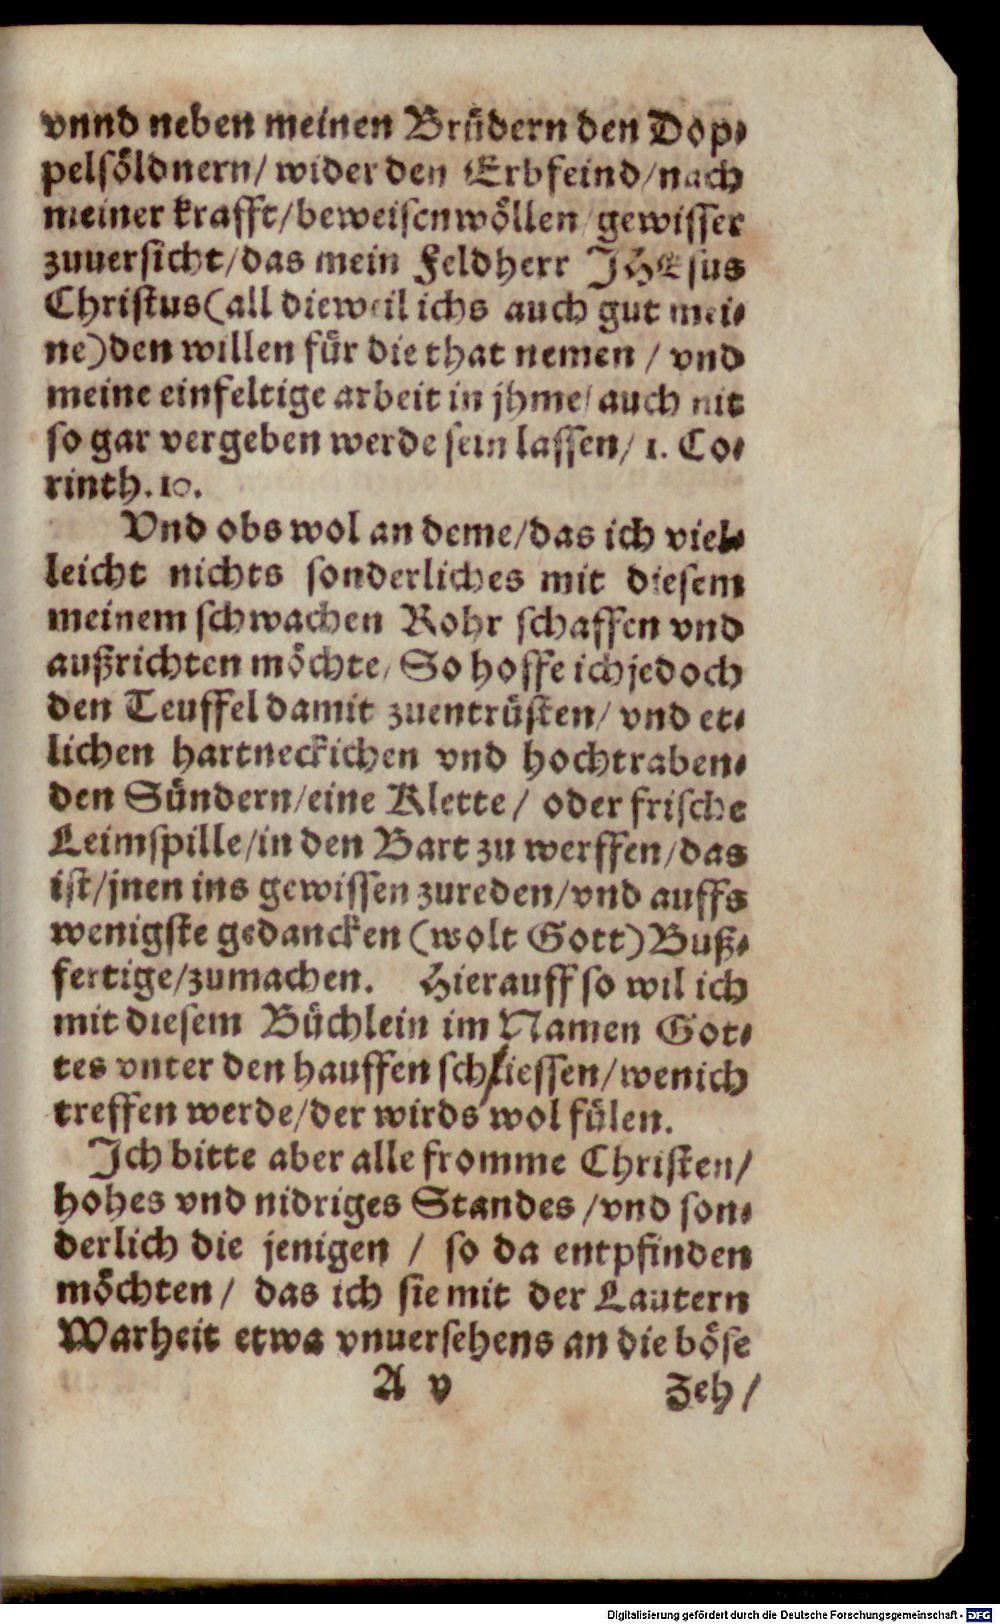 vnnd neben meinen Brüdern den Dop-
pelsöldnern/ wider den Erbfeind/nach
meiner krafft/beweisen wöllen/gewisser
zuuersicht/das mein Feldherr JHEsus
Christus(all dieweil ichs auch gut mei-
ne)den willen für die that nemen / vnd
meine einfeltige arbeit in jhme/auch nit
so gar vergeben werde sein lassen/ 1. Co-
rinth.10.
Vnd obs wol an deme/das ich viel-
leicht nichts sonderliches mit diesem
meinem schwachen Rohr schaffen vnd
außrichten möchte/ So hoffe ich jedoch
den Teuffel damit zuentrüsten/ vnd et-
lichen hartneckichen vnd hochtraben-
den Sündern/eine Klette/ oder frische
Leimspille/in den Bart zu werffen/das
ist/jnen ins gewissen zureden/vnd auffs
wenigste gedancken (wolt Gott)Buß-
fertige/zumachen. Hierauff so wil ich
mit diesem Büchlein im Namen Got-
tes vnter den hauffen schiessen/wen ich
treffen werde/der wirds wol fülen.
Jch bitte aber alle fromme Christen/
hohes vnd nidriges Standes /vnd son-
derlich die jenigen / so da entpfinden
möchten/ das ich sie mit der Lautern
Warheit etwa vnuersehens an die böse
A v Zeh/
Digitalisierung gefördert durch die Deutsche Forschungsgemeinschaft - DFG